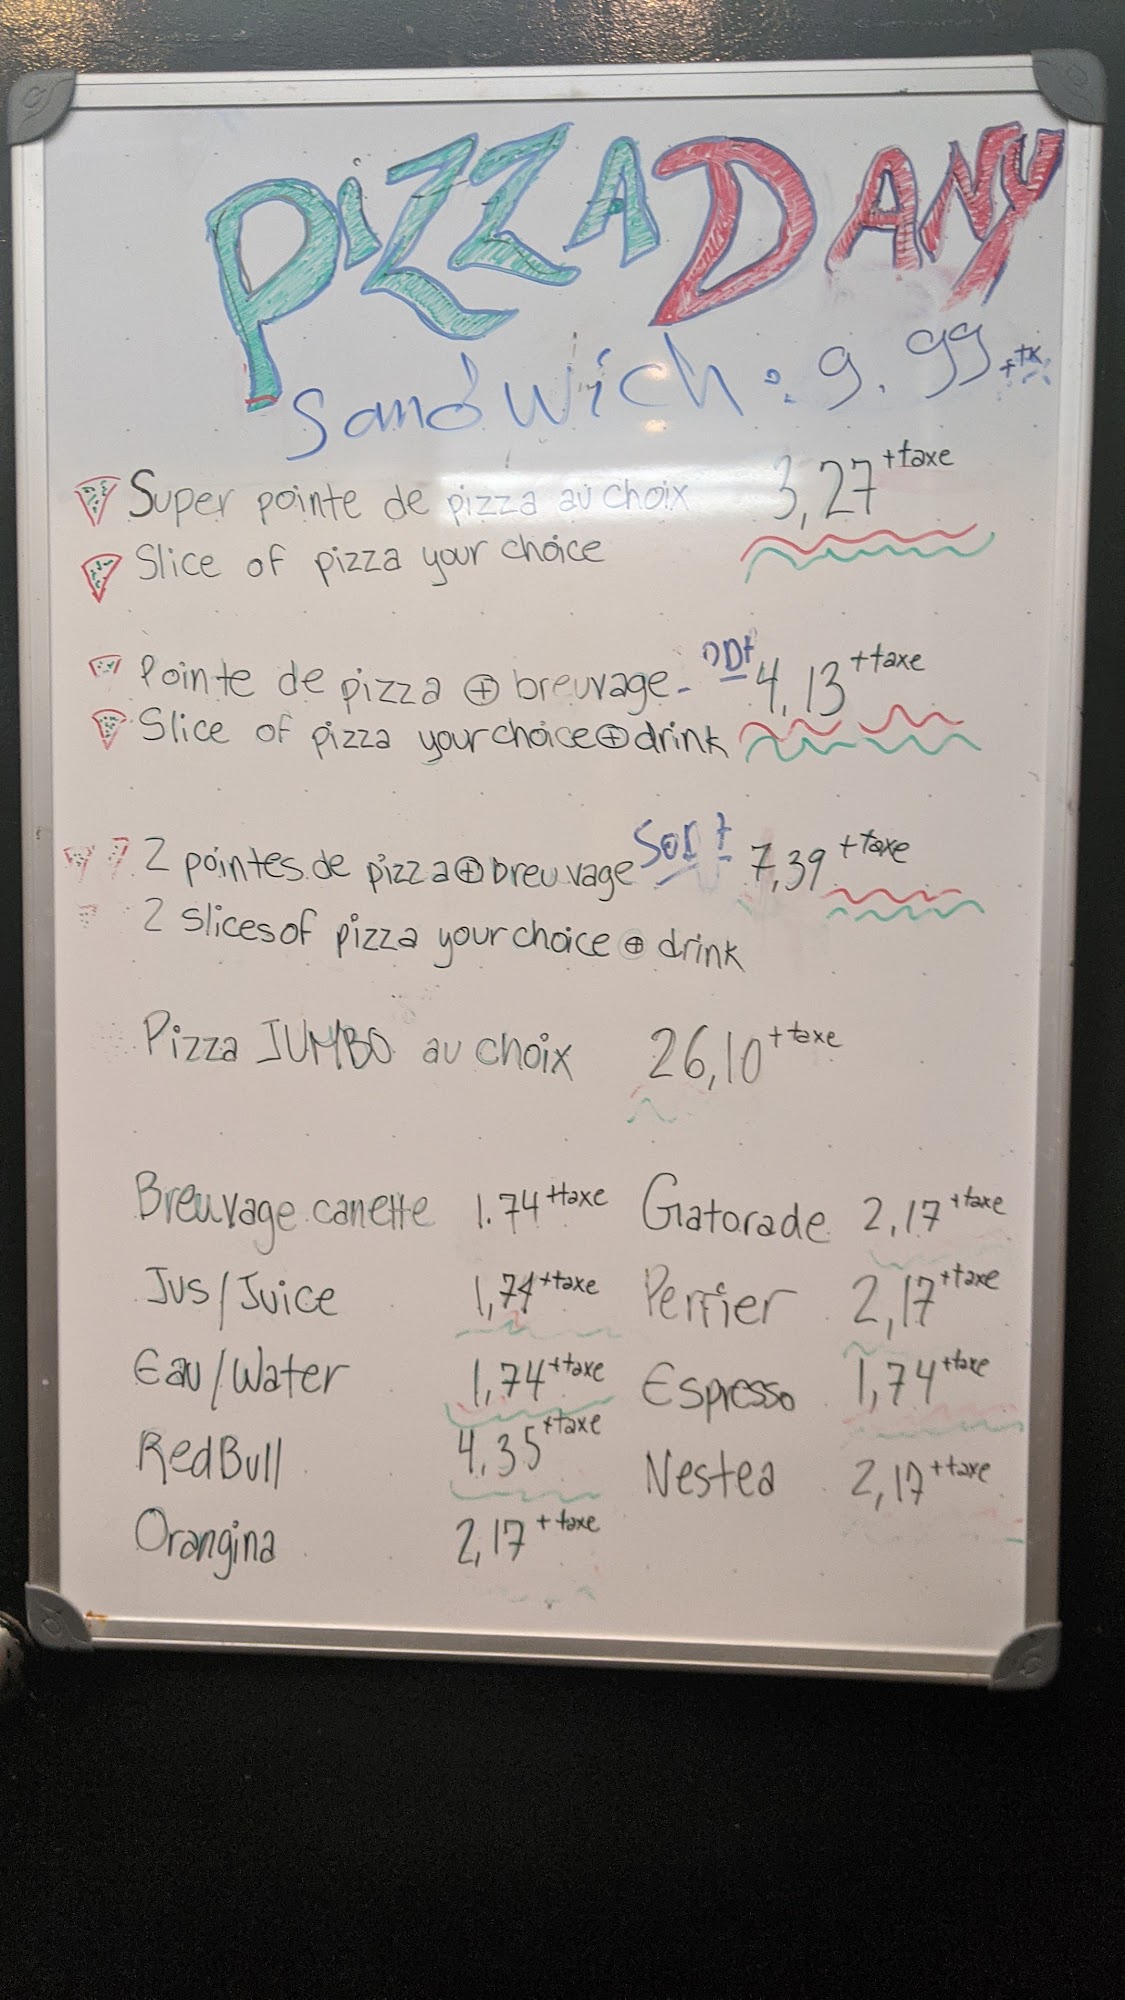 PiZZA DANY
Sandwich: 9.99 +tx
Super pointe de pizza au choix 3,27 +taxe
Slice of pizza your choice
Pointe de pizza ⊕ breuvage - 4,13 +taxe
Slice of pizza your choice ⊕ drink
2 pointes de pizza ⊕ breuvage 7,39 +taxe
2 slices of pizza your choice ⊕ drink
Pizza JUMBO au choix 26,10 +taxe
Breuvage canette 1.74 +taxe Gatorade 2,17 +taxe
Jus/Juice 1,74 +taxe Perrier 2,17 +taxe
Eau/Water 1,74 +taxe Espresso 1,74 +taxe
RedBull 4,35 +taxe Nestea 2,17 +taxe
Orangina 2,17 +taxe